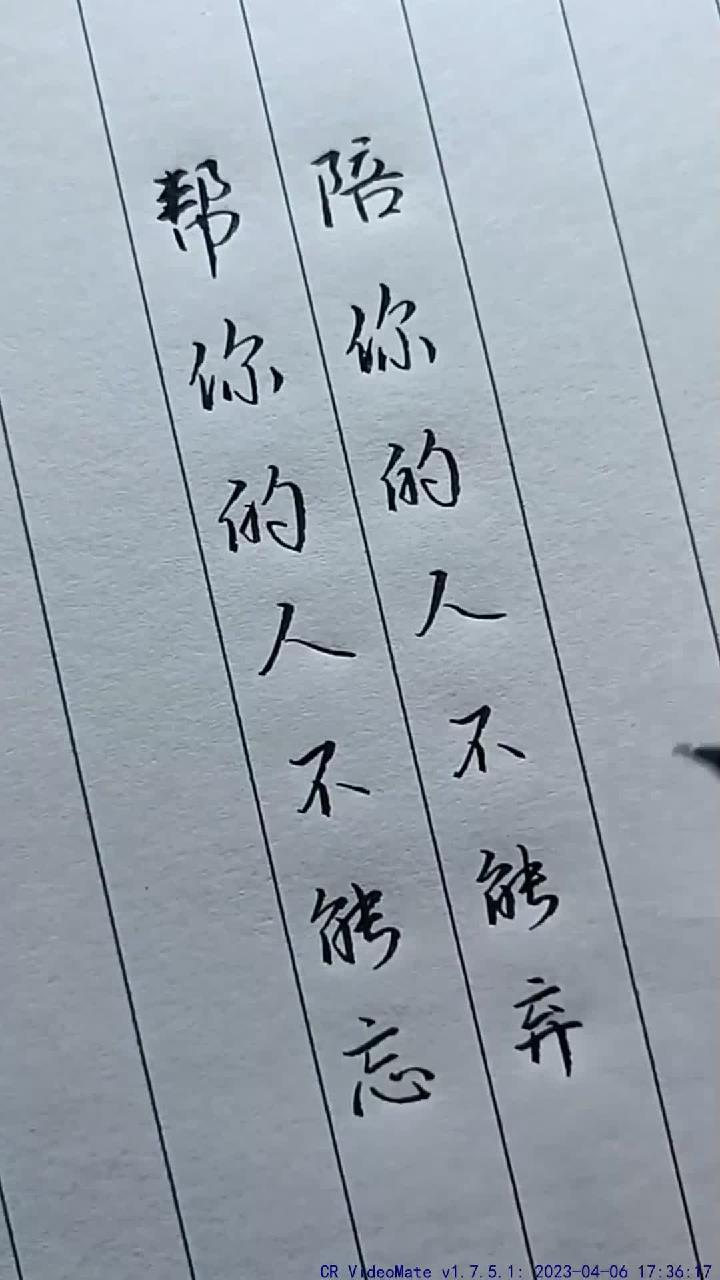 陪你的人不能弃
帮你的人不能忘
CR VideoMate v1.7.5.1: 2023-04-06 17:36:17